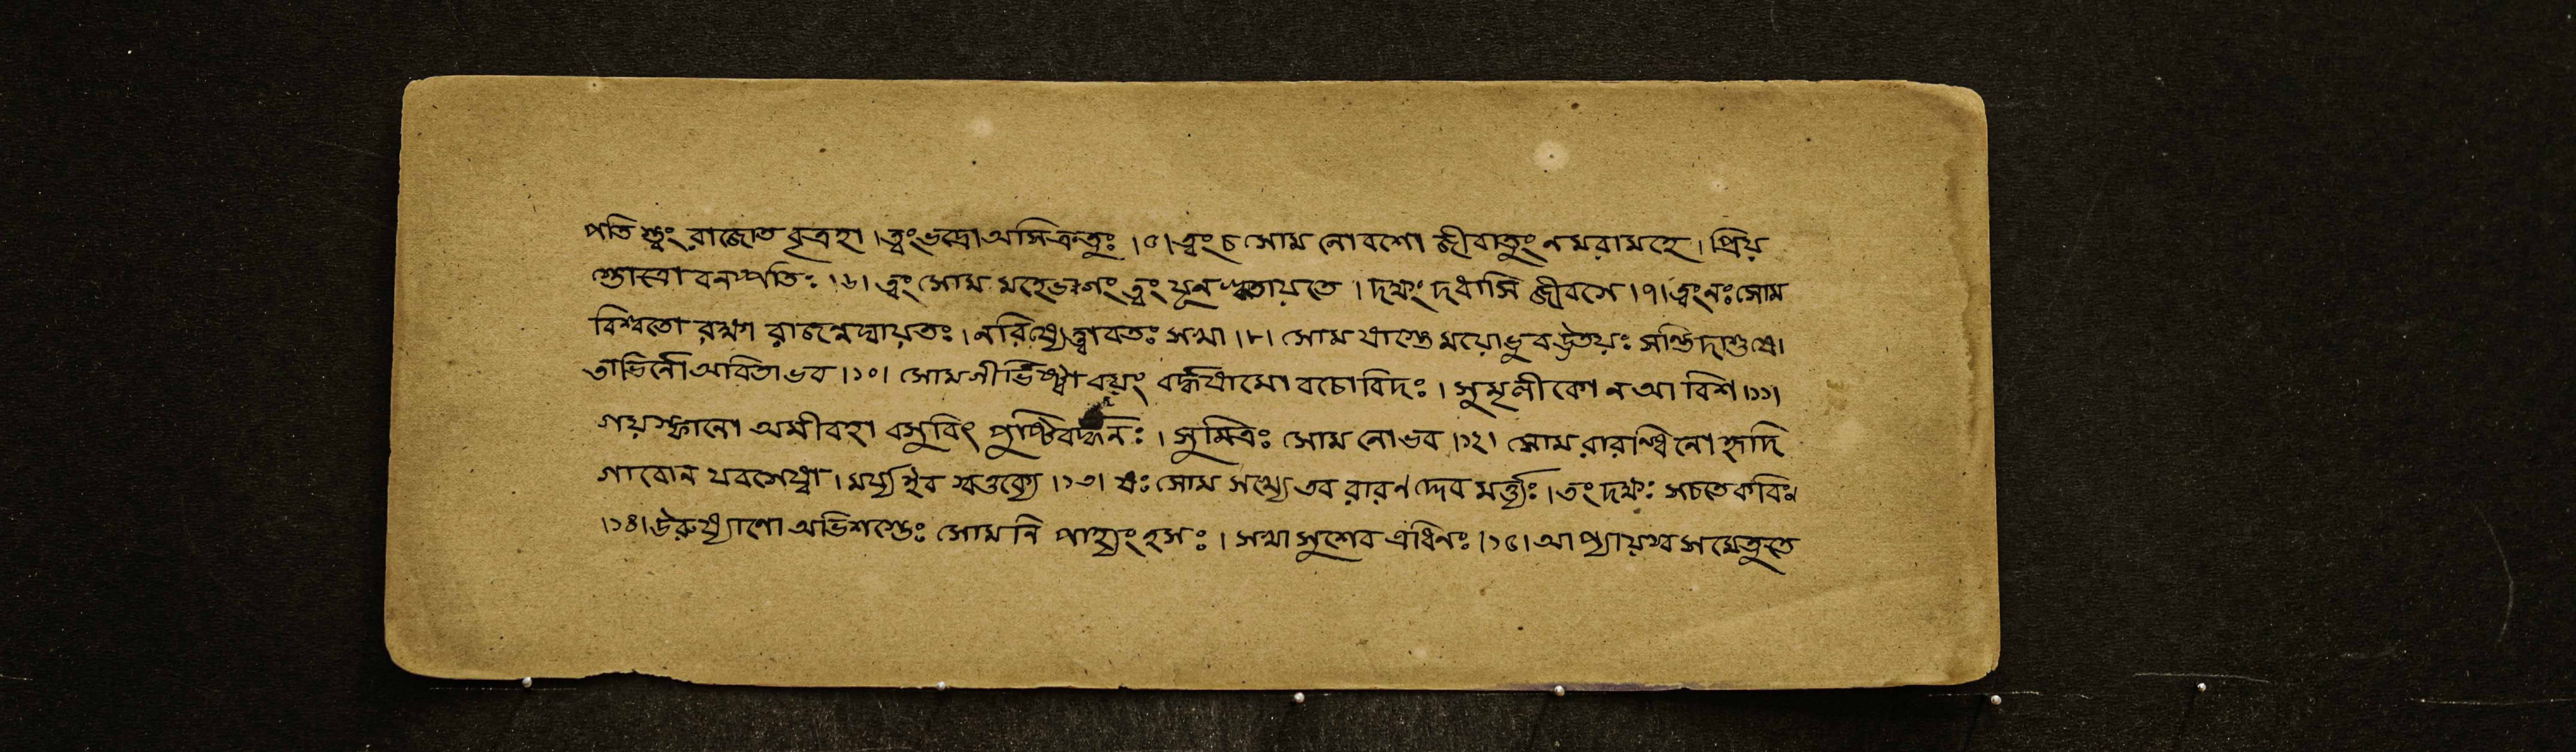 পতি স্ত্বং রাজোত বৃত্রহা । ত্বং ভদ্রো অসি ক্রতুঃ ।৫। ত্বং চ সোম নো বশো জীবাতুং ন মরামহে । প্রিয়
স্তোত্রো বনস্পতিঃ ।৬। ত্বং সোম মহে ভগং ত্বং যূন ঋতায়তে । দক্ষং দধাসি জীবসে ।৭। ত্বং নঃ সোম
বিশ্বতো রক্ষা রাজন্নঘায়তঃ । ন রিষ্যেত্ত্বাবতঃ সখা ।৮। সোম যাস্তে ময়োভুব ঊতয়ঃ সন্তি দাশুষে ।
তাভির্নো অবিতা ভব ।১০। সোম গীর্ভিষ্ট্বা বয়ং বর্দ্ধযামো বচোবিদঃ । সুমৃলীকো ন আ বিশ ।১১।
গয়স্ফানো অমীবহা বসুবিৎ পুষ্টিবর্দ্ধনঃ । সুমিত্রঃ সোম নো ভব ।১২। সোম রারন্ধি নো হৃদি
গাবো ন যবসেষ্বা । মর্য্য ইব স্ব ওক্যে ।১৩। যঃ সোম সখ্যে তব রারণদ্দেব মর্ত্ত্যঃ । তং দক্ষঃ সচতে কবিঃ
।১৪। উরুষ্যাণো অভিশস্তেঃ সোম নি পাহ্যংহসঃ । সখা সুশেব এধি নঃ ।১৫। আ প্যায়স্ব সমেতু তে